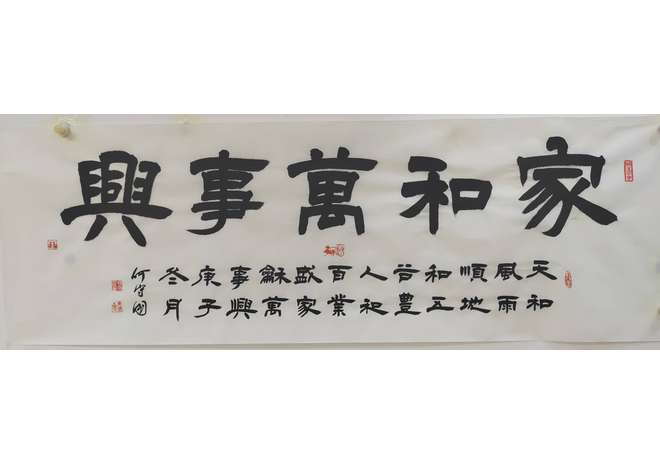 家和萬事興
天和
風雨
順地
和五
谷豊
人和
百業
盛家
龢萬
事興
庚子
冬月